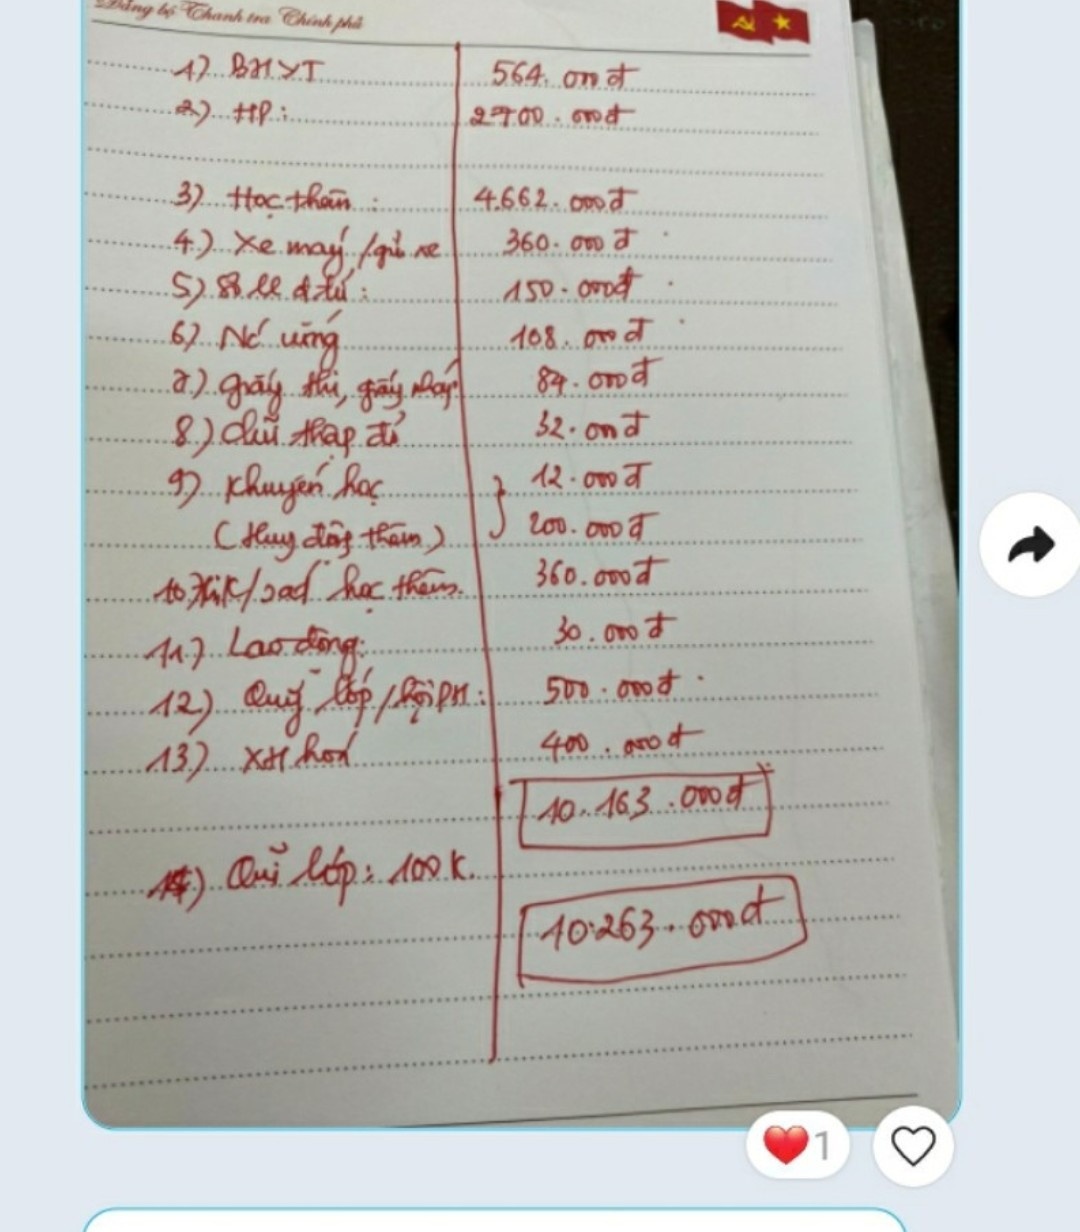 Đảng bộ Thanh tra Chính phủ
1) BHYT 564.000đ
2) HP: 2700.000đ
3) Học thêm: 4.662.000đ
4.) Xe máy/gửi xe 360.000đ
5) Sổ LL đ.tử: 150.000đ
6) Nc' uống 108.000đ
7.) giấy thi, giấy nháp 84.000đ
8.) chữ thập đỏ 32.000đ
9) Khuyến học } 12.000đ
(Huy động thêm) 200.000đ
10) học thêm. 360.000đ
11.) Lao động: 30.000đ
12) Quỹ lớp/hội PH: 500.000đ
13) XH hoá 400.000đ
10.163.000đ
14) Quĩ lớp: 100K.
10.263.000đ
1